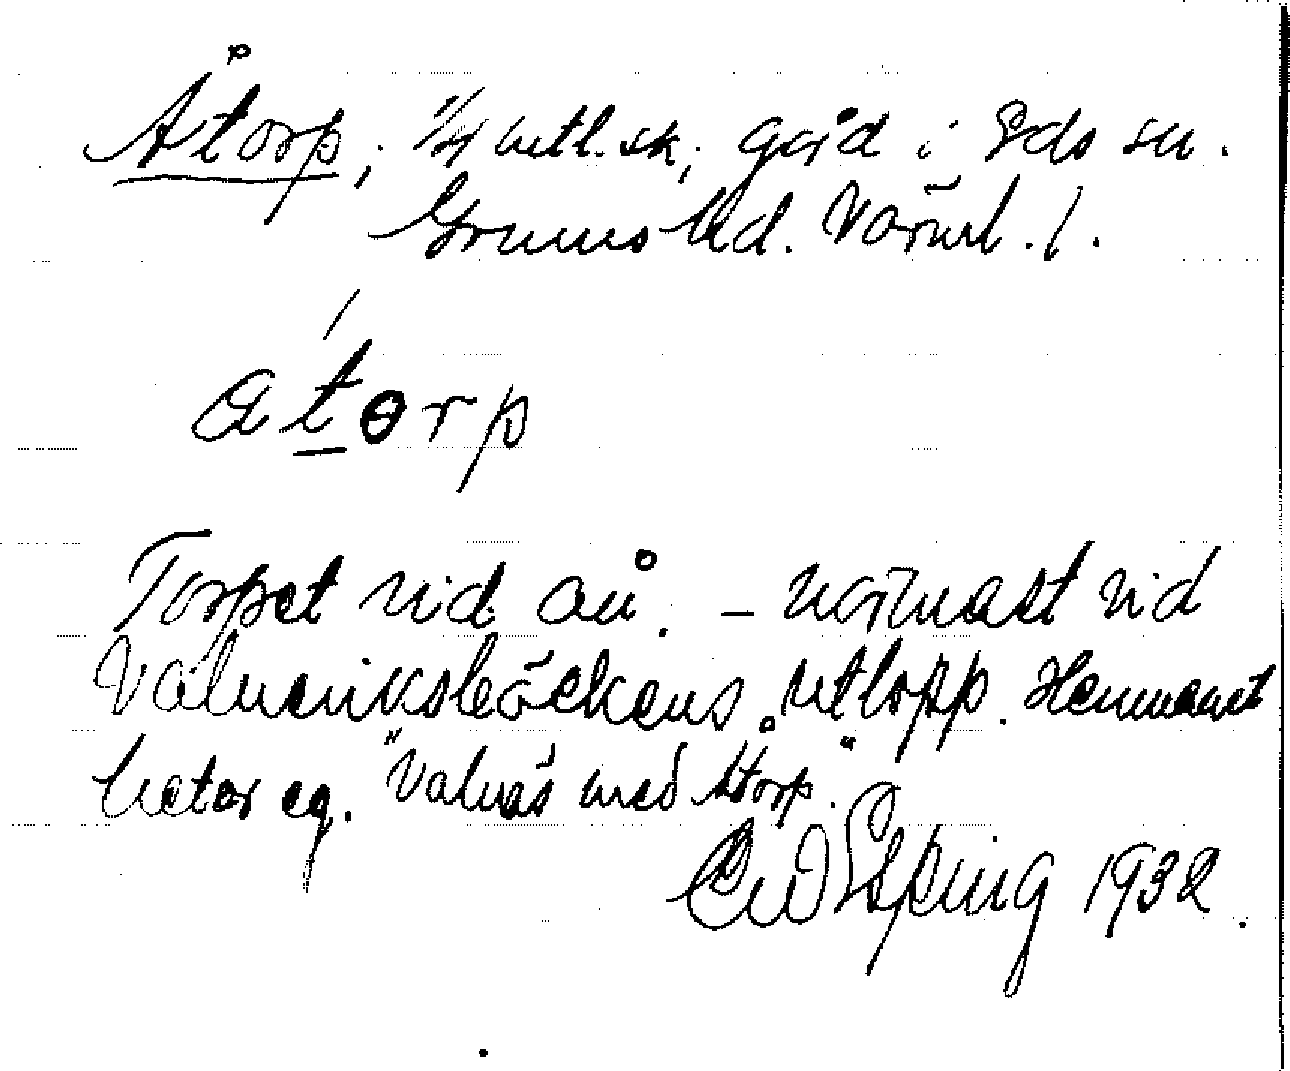 Åtorp, 1/4 mtl. sk, gård i Eds sn.
Grums hd. Värml. l.
atɵrp
Torpet vid ån. – närmast vid
Valnäsviksbäckens utlopp. Hemmanet
heter eg. "Valnäs med Åtorp."
Elping 1932.